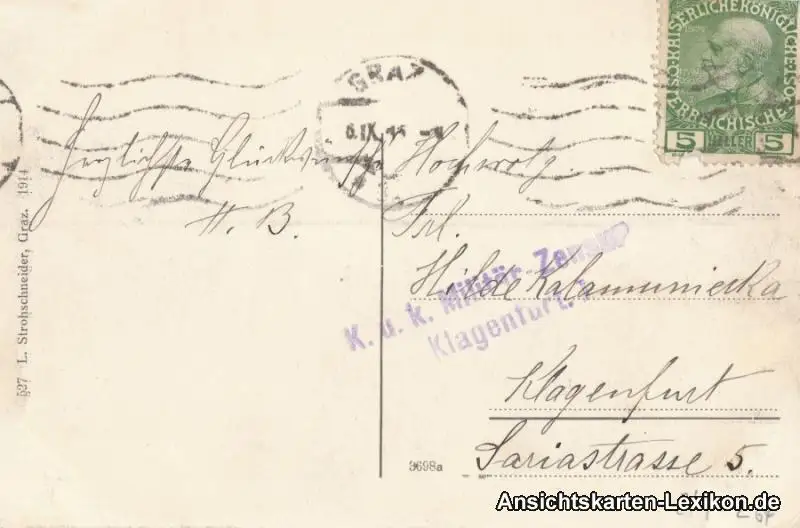 GRAZ
6.IX.15
KAISERLICHEKÖNIGLICHE
ÖSTERREICHISCHE
5 HELLER 5
Herzlichste Glückwünsche
H. B.
Hochwolg.
Frl.
Hilde Kalamuniecka
Klagenfurt
Sariastrasse 5.
K. u. k. Militär-Zensur
Klagenfurt
527 L. Strohschneider, Graz. 1914
3698a
Ansichtskarten-Lexikon.de